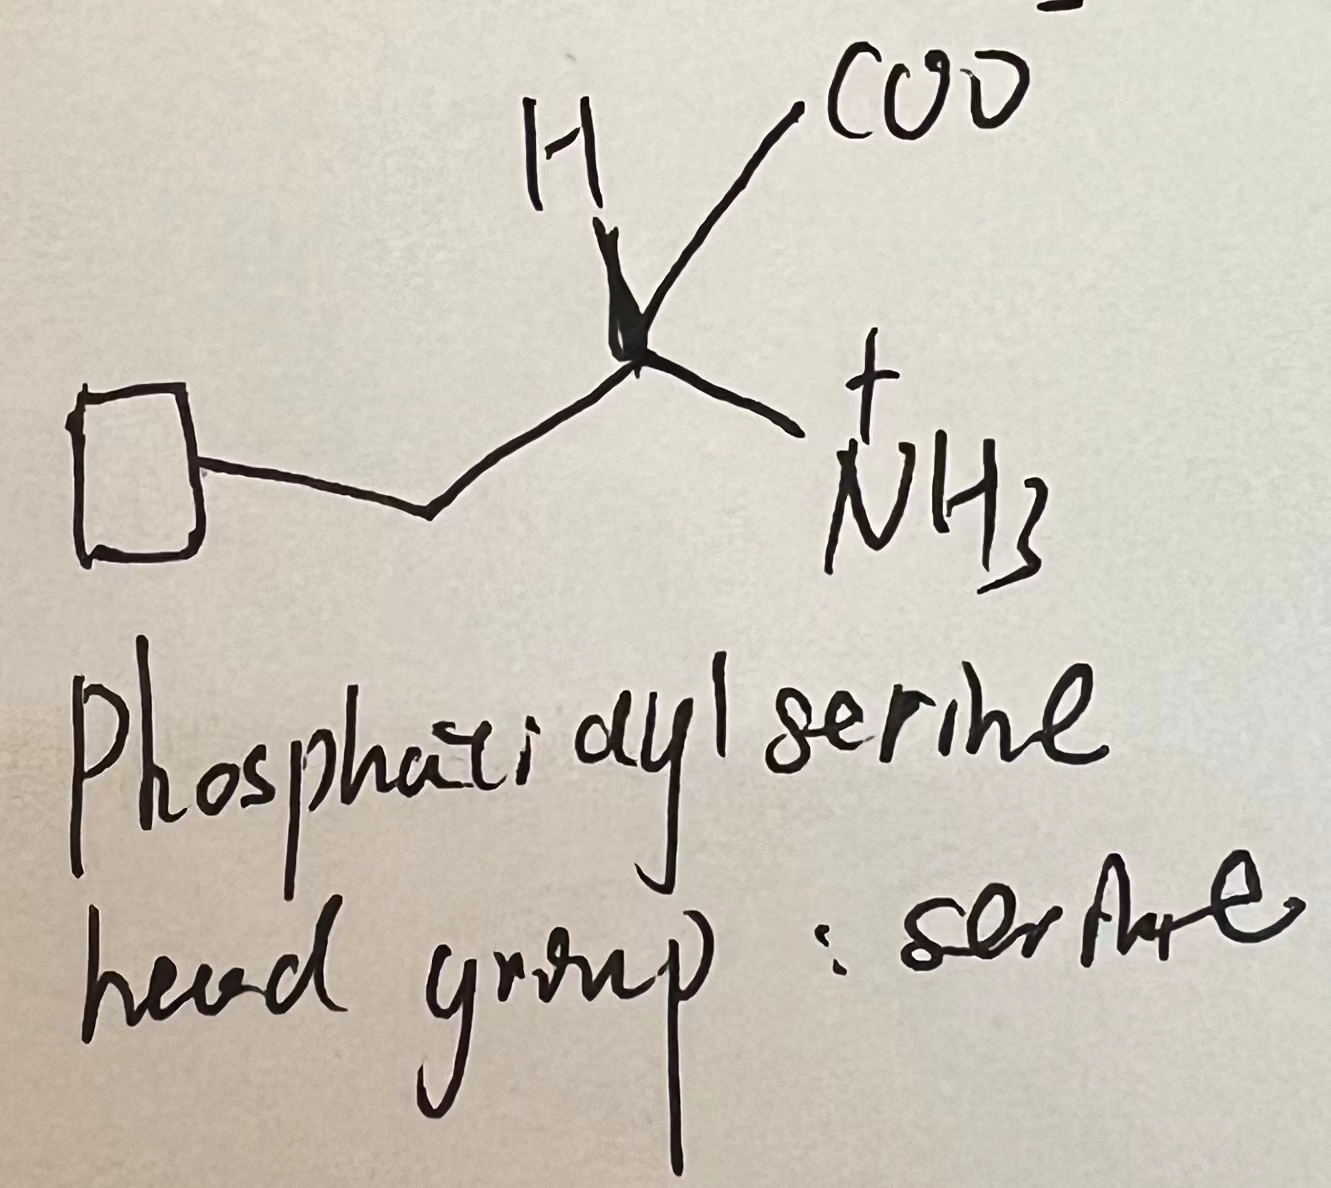 H
COO⁻
⁺NH₃
Phosphatidylserine
head group : serine